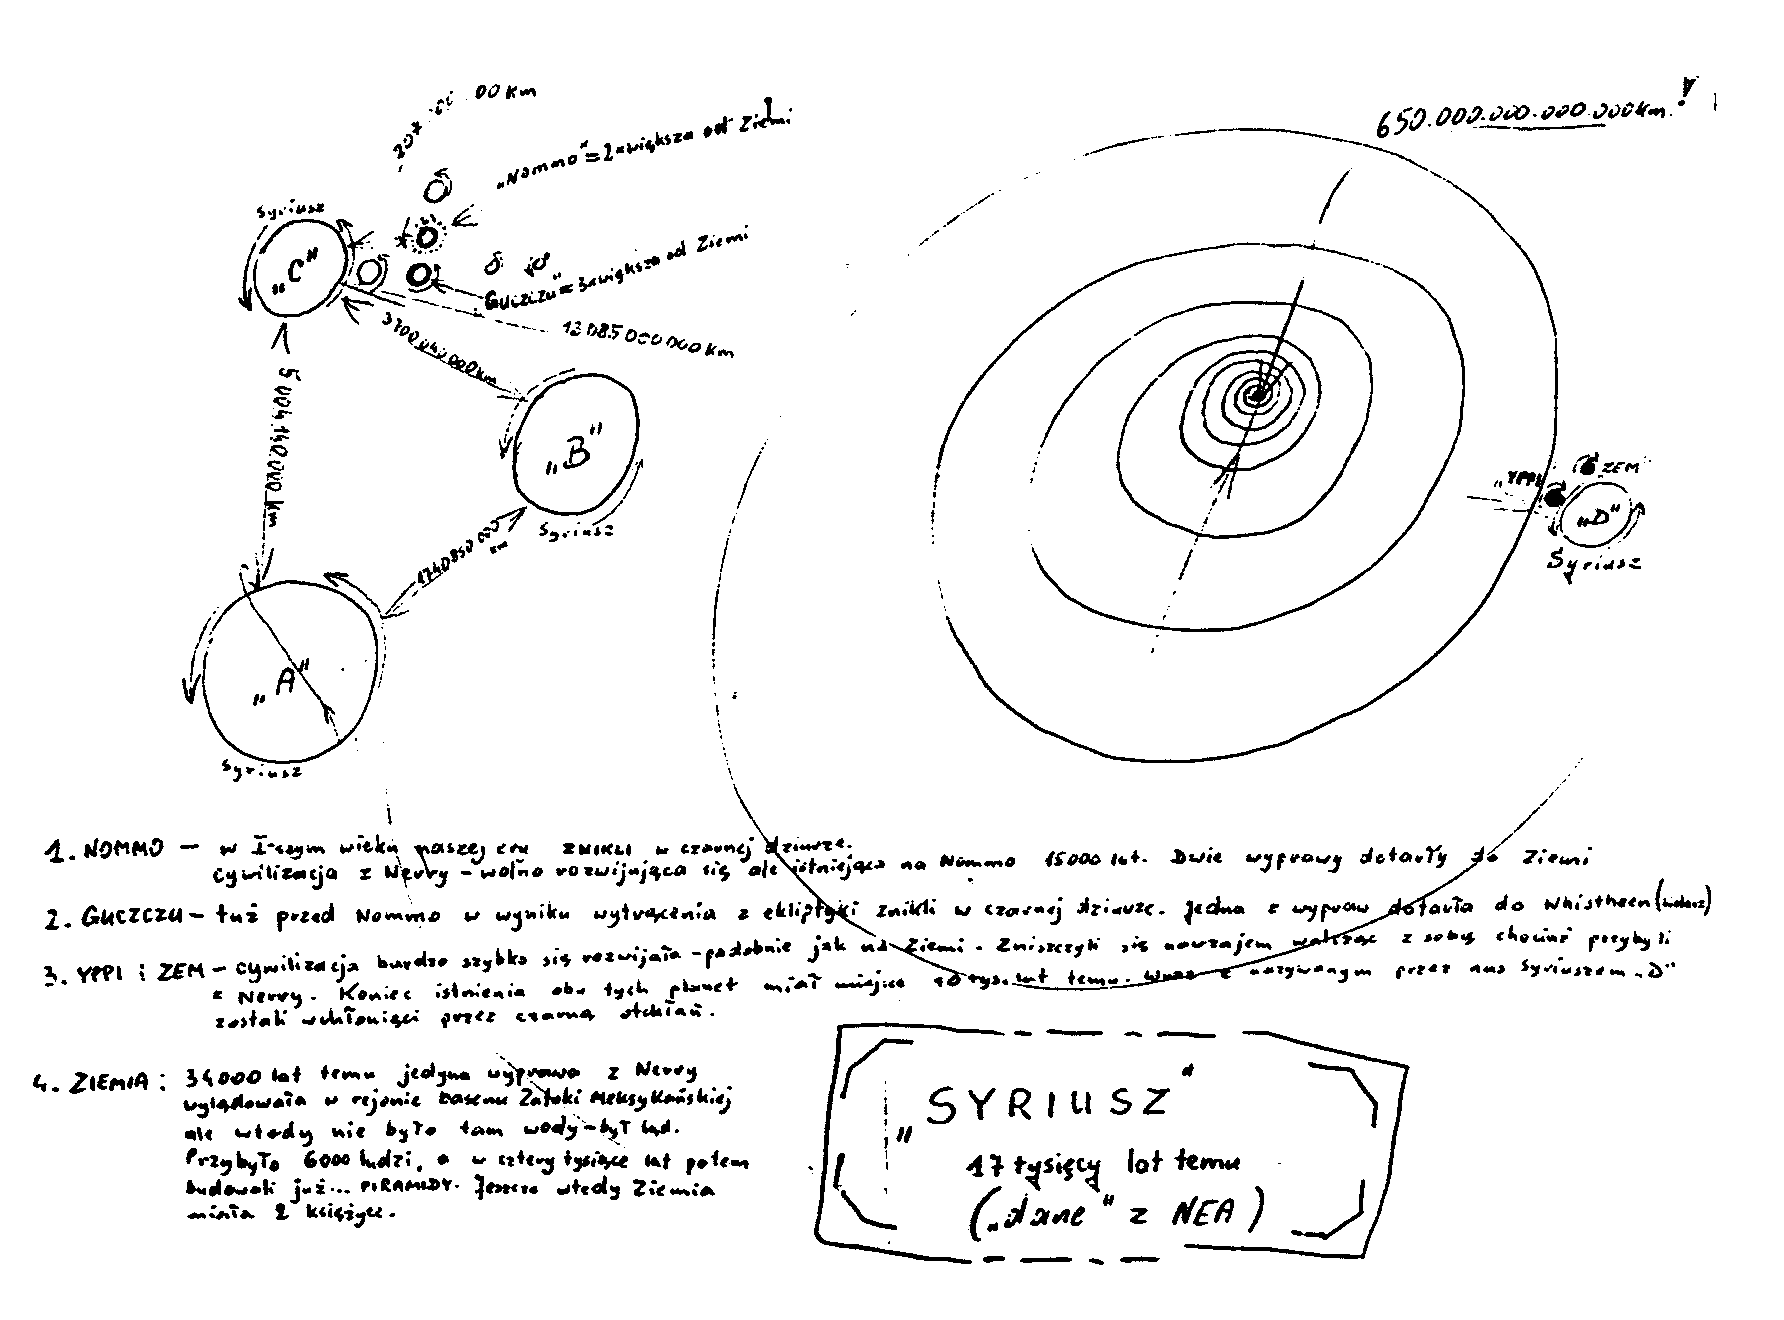 00 km
650.000.000.000.000 km!
„Nommo" = 2xwiększa od Ziemi
Syriusz
„C"
Guczczu" = 3xwiększa od Ziemi
12 085 000 000 km
3700 040 000 km
5 004 140 000 km
„B"
Syriusz
1740 850 000 km
„A"
Syriusz
„YPPI
ZEM
„D"
Syriusz
1. NOMMO — w I-szym wieku naszej ery ZNIKLI w czarnej dziurze.
Cywilizacja z Nerry – wolno rozwijająca się ale istniejąca na Nommo 15000 lat. Dwie wyprawy dotarły do Ziemi
2. GUCZCZU – tuż przed Nommo w wyniku wytrącenia z ekliptyki znikli w czarnej dziurze. Jedna z wypraw dotarła do Whistheen
3. YPPI i ZEM – cywilizacja bardzo szybko się rozwijała – podobnie jak na Ziemi. Zniszczyli się nawzajem walcząc z sobą chociaż przybyli
z Nerry. Koniec istnienia obu tych planet miał miejsce tys. lat temu. Wraz z nazywanym przez nas Syriuszem „D"
zostali wchłonięci przez czarną otchłań.
4. ZIEMIA: 34000 lat temu jedyna wyprawa z Nerry
wylądowała w rejonie basenu Zatoki Meksykańskiej
ale wtedy nie było tam wody – był ląd.
Przybyło 6000 ludzi, a w cztery tysiące lat potem
budowali już... PIRAMIDY. Jeszcze wtedy Ziemia
miała 2 księżyce.
„SYRIUSZ"
17 tysięcy lat temu
(„dane" z NEA)